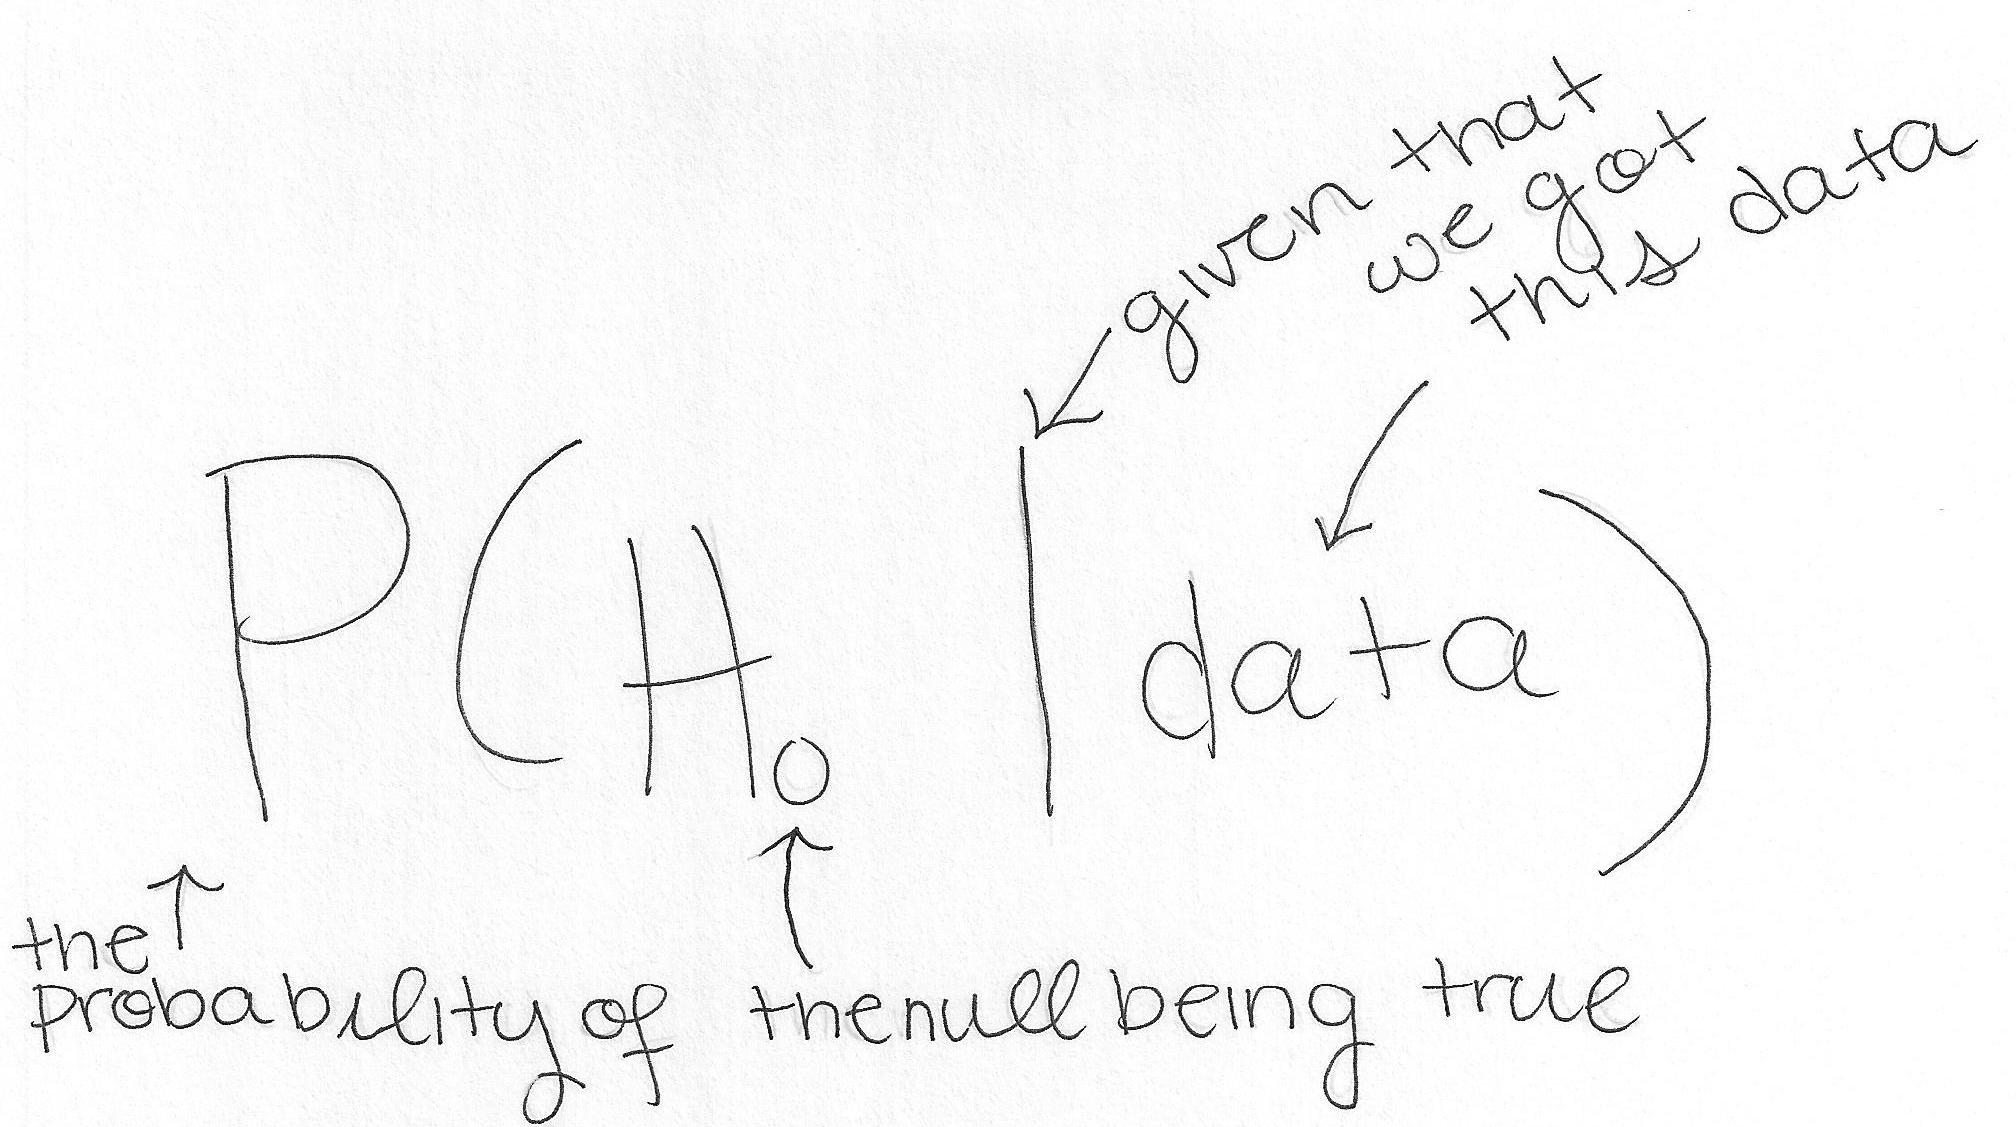 given that
we got
this data
P(H₀ | data)
the
probability of the null being true